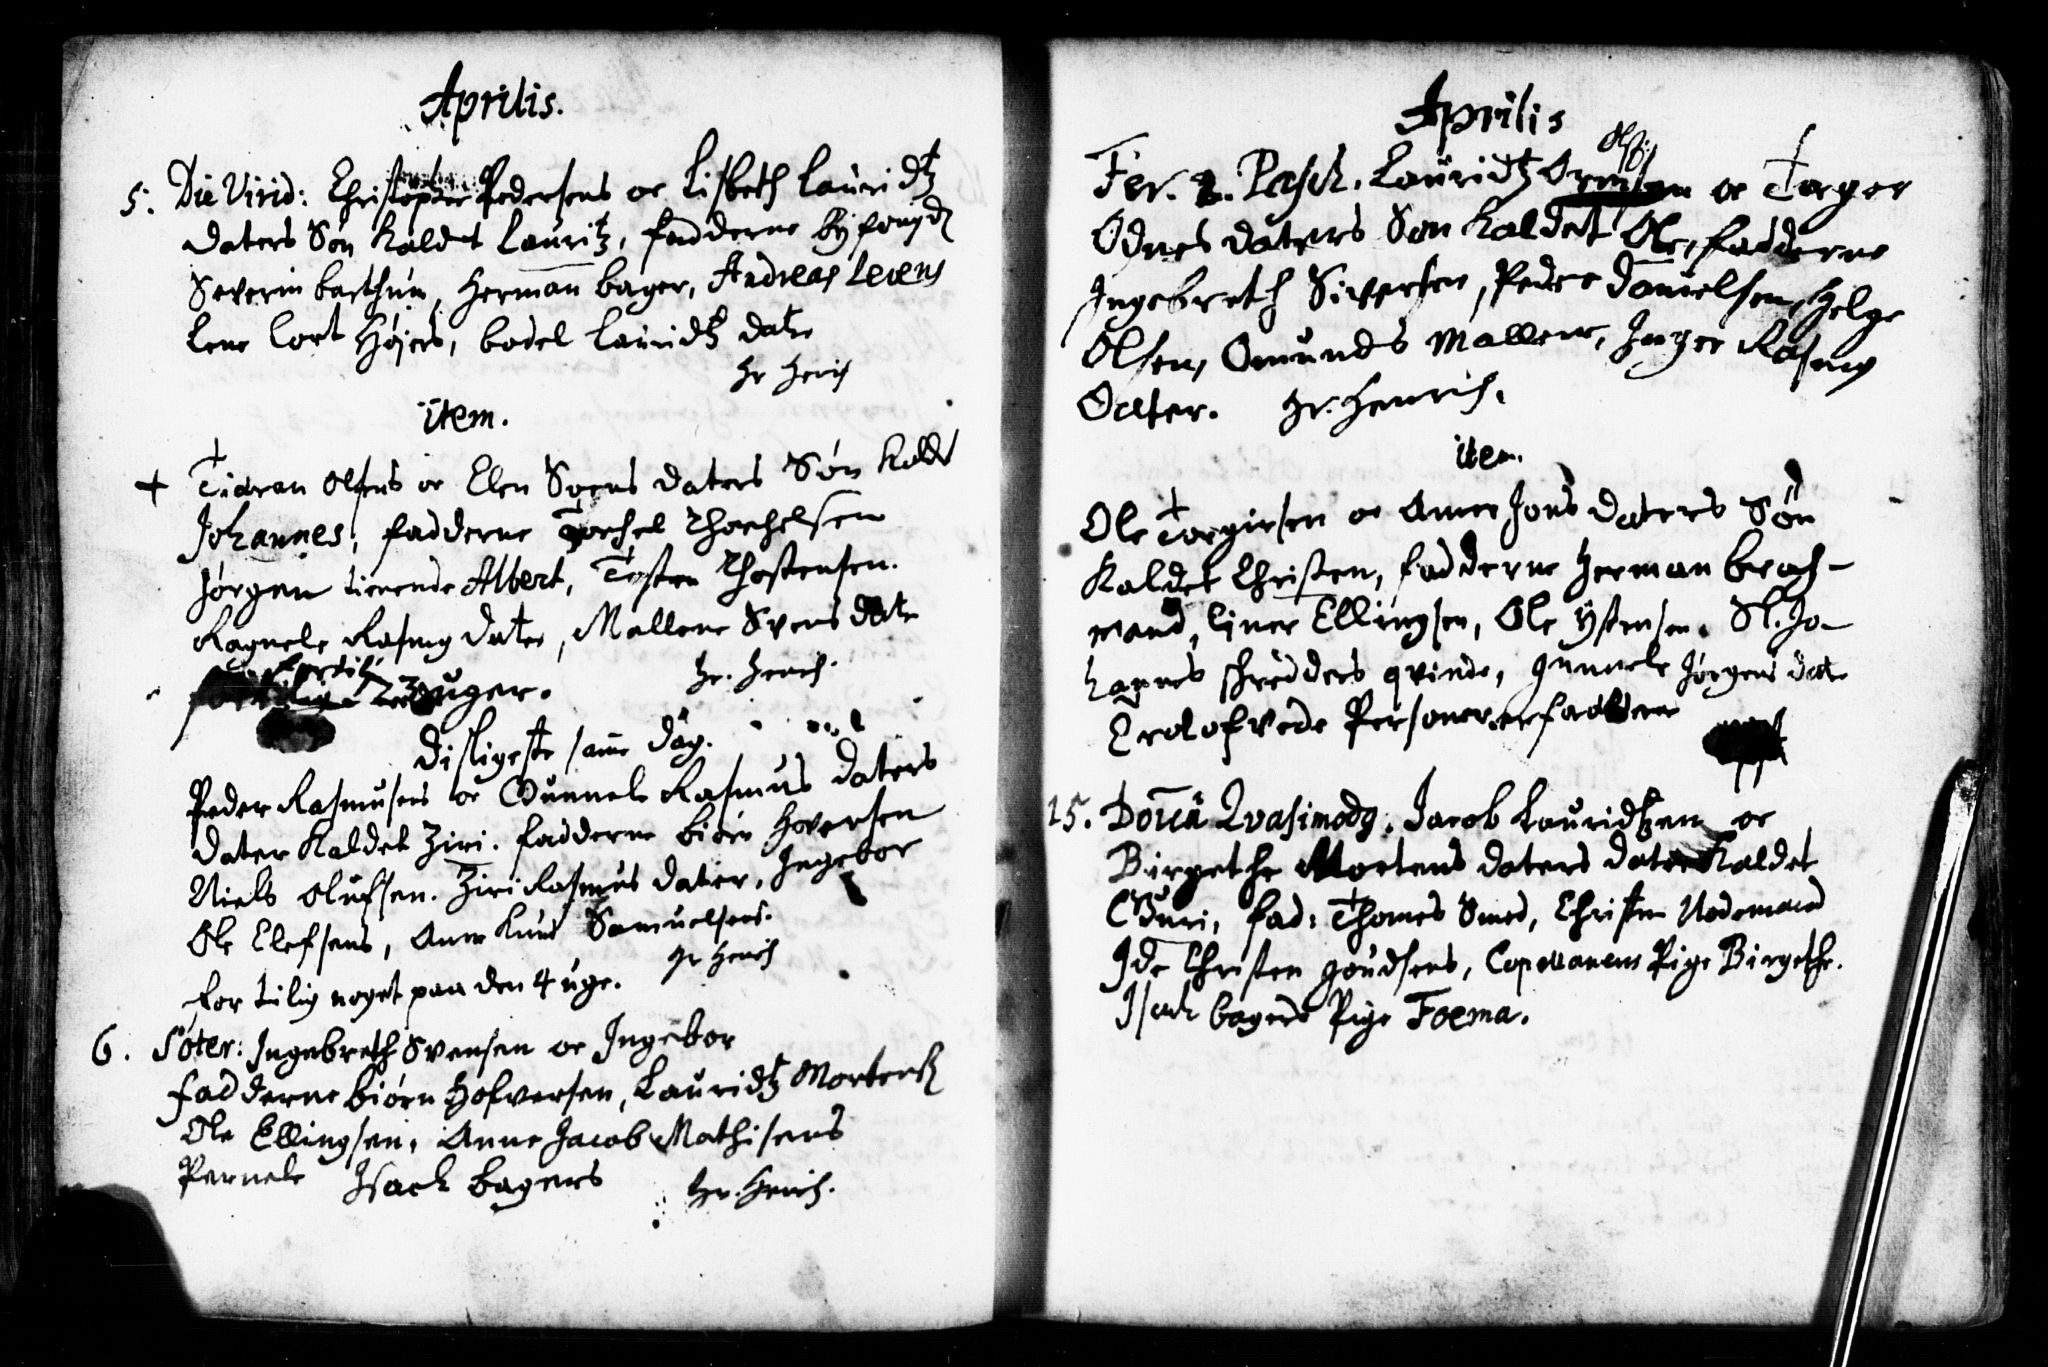 Aprilis.
5. Die Virid: Christopher Pedersens oc Lisbeth Lauridtz
daters Søn Kaldet Lauritz, fadderne Byfougd
Severin barthun, Herman bager, Andreas Levens
Lene Cort Højers, bodel Lauridtz dater
Hr Henrich
item.
+ Olsens oc Elen Svens daters Søn Kaldet
Johannes, fadderne Torchel Thorchelsen
Jørgen tienende Albert, Tosten Thostensen.
Ragnele Rasmus dater, Mallene Svens dater
Hr. Henrich.
uger.
Disligeste samme dag.
Peder Rasmusens oc Gunnele Rasmus daters
dater Kaldet Ziri. fadderne biørn Hoversen
Niels Olufsen. Ziri Rasmus dater, Ingebor
Ole Elefsens, Anne Knud Samuelsens.
Hr Henrich
for tilig noget paa den 4 uge.
6. Søter: Ingebreth Svensen oc Ingebor
fadderne biørn Hofversen, Lauridtz Mortens
Ole Ellingsen, Anne Jacob Mathisens
Pernele Isack bagers
Hr. Henrich.
Aprilis
Fer. 2. Pasch. Lauridtz Ols: oc Torgor
Odnes daters Søn Kaldet Ole, fadderne
Ingebreth Siversen, Peder Danielsen, Helge
Olsen, Omunds Mallene, Inger Rasmus
Dater. Hr. Henrich.
item.
Ole Torgiersen oc Anne Jons daters Søn
Kaldet Christen, fadderne Herman brach-
mand, Einer Ellingsen, Ole Ystensen. Sl. Jo-
hannes schrædders qvinde, gunnele Jørgens dater
Personer
15. Dom̄ca Qvasimodog. Jacob Lauridtzen oc
Birgethe Mortens daters dater Kaldet
Guri, fad: Thomes Smed, Christen
Ide Christen goudsens, Capellanens Pige Birgethe.
Isack bagers Pige Foema.